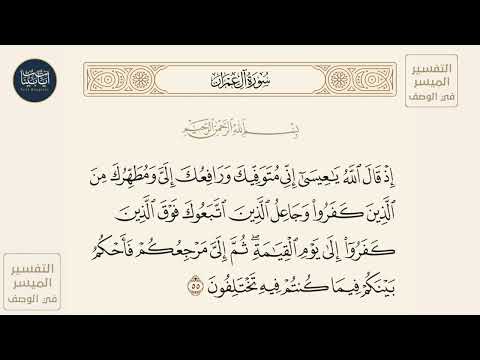 التفسير
الميسر
في الوصف
سُورَةُ آلِ عِمْرَان
آيات بينات
بِسْمِ اللَّهِ الرَّحْمَٰنِ الرَّحِيمِ
إِذْ قَالَ اللَّهُ يَٰعِيسَىٰٓ إِنِّى مُتَوَفِّيكَ وَرَافِعُكَ إِلَىَّ وَمُطَهِّرُكَ مِنَ
الَّذِينَ كَفَرُوا۟ وَجَاعِلُ الَّذِينَ اتَّبَعُوكَ فَوْقَ الَّذِينَ
كَفَرُوٓا۟ إِلَىٰ يَوْمِ الْقِيَٰمَةِ ۖ ثُمَّ إِلَىَّ مَرْجِعُكُمْ فَأَحْكُمُ
بَيْنَكُمْ فِيمَا كُنتُمْ فِيهِ تَخْتَلِفُونَ ٥٥
التفسير
الميسر
في الوصف